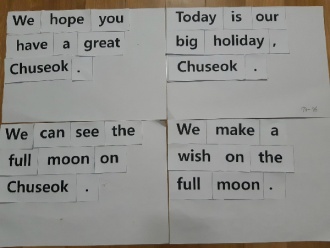 We hope you
have a great
Chuseok .
Today is our
big holiday ,
Chuseok .
We can see the
full moon on
Chuseok .
We make a
wish on the
full moon .